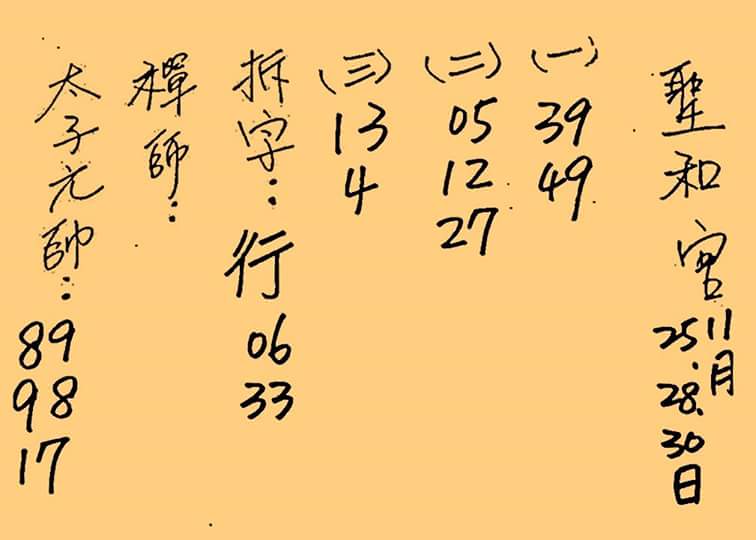 聖和宮
11月
25.28.30日
(一)
39
49
(二)
05
12
27
(三)
13
4
拆字:行
06
33
禪師:
太子元帥:
89
98
17